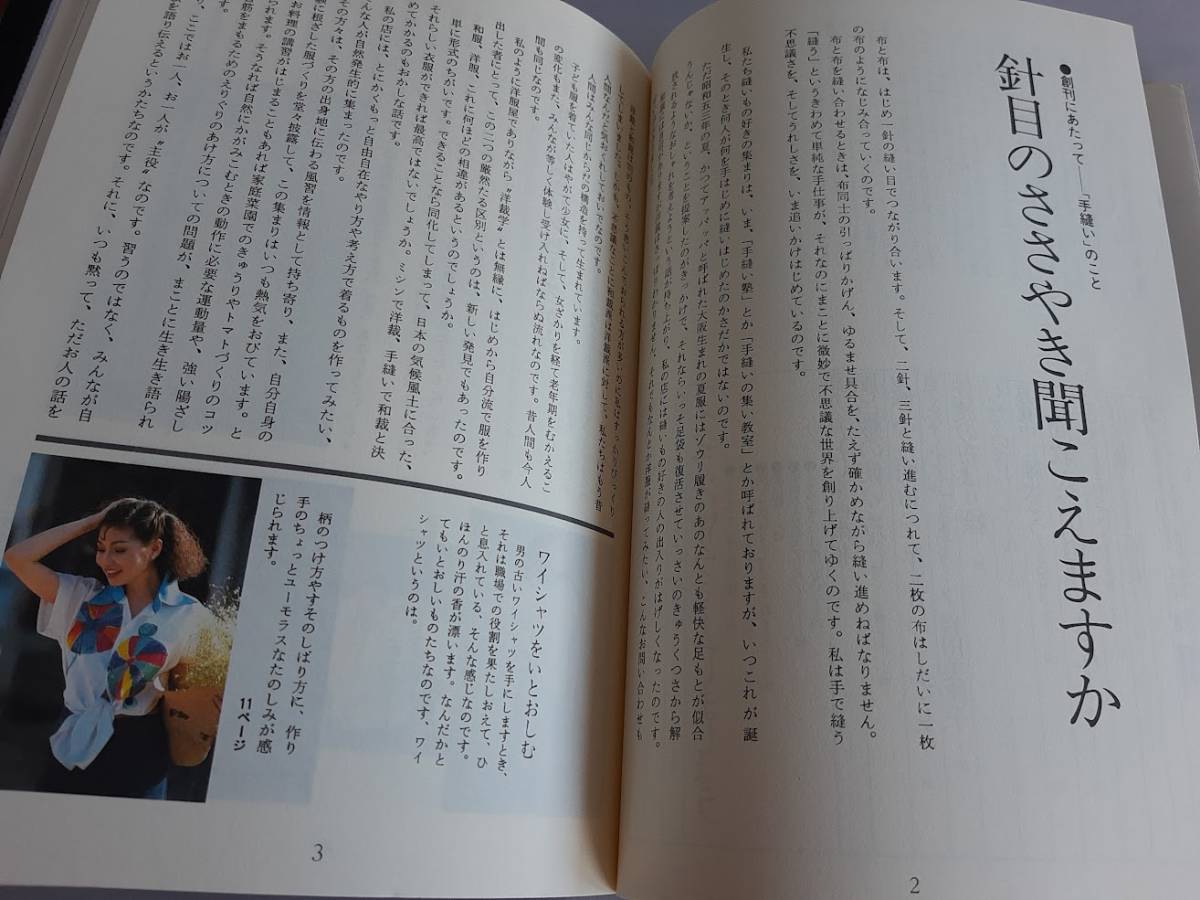 ●創刊にあたって──「手縫い」のこと
針目のささやき聞こえますか
布と布は、はじめ一針の縫い目でつながり合います。そして、二針、三針と縫い進むにつれて、二枚の布はしだいに一枚
の布のようになじみ合っていくのです。
布と布を縫い合わせるときは、布同士の引っぱりかげん、ゆるませ具合を、たえず確かめながら縫い進めねばなりません。
「縫う」というきわめて単純な手仕事が、それなのにまことに微妙で不思議な世界を創り上げてゆくのです。私は手で縫う
不思議さを、そしてうれしさを、いま追いかけはじめているのです。
私たち縫いもの好きの集まりは、いま、「手縫い塾」とか「手縫いの集い教室」とか呼ばれておりますが、いつこれが誕
生し、そのとき何人が何を手はじめに縫いはじめたのかさだかではないのです。
ただ昭和五三年の夏、かつてアッパッパと呼ばれた大阪生まれの夏服にはゾウリ履きのあのなんとも軽快な足もとが似合
うんじゃないか、ということを提案したのがきっかけで、それならいっそ足袋も復活させていっさいのきゅうくつさから解
放されるようなおしゃれを考えようという話が持ち上がり、私の店には縫いもの好きの人の出入りがはげしくなったのです。
こんなお問い合わせも
2
人間はみんな同じからだの構造を持って生まれています。
子ども服を着ていた人はやがて少女に、そして、女ざかりを経て老年期をむかえるこ
の変化もまた、みんなが等しく体験し受け入れねばならぬ流れなのです。昔人間も今人
間も同じなのです。
私のように洋服屋でありながら〝洋裁学〟とは無縁に、はじめから自分流で服を作り
出した者にとって、この二つの厳然たる区別というのは、新しい発見でもあったのです。
和服、洋服、これに何ほどの相違があるというのでしょうか。
単に形式のちがいです。できることなら同化してしまって、日本の気候風土に合った、
それらしい衣服ができれば最高ではないでしょうか。ミシンで洋裁、手縫いで和裁と決
めてかかるのもおかしな話です。
私の店には、とにかくもっと自由自在なやり方や考え方で着るものを作ってみたい、
そんな人が自然発生的に集まったのです。
その方々は、その方の出身地に伝わる風習を情報として持ち寄り、また、自分自身の
験に根ざした服づくりを堂々披露して、この集まりはいつも熱気をおびています。と
お料理の講習がはじまることもあれば家庭菜園でのきゅうりやトマトづくりのコツ
られます。そうなれば自然にかがみこむときの動作に必要な運動量や、強い陽ざし
筋をまもるためのえりぐりのあけ方についての問題が、まことに生き生き語られ
です。
り、ここではお一人、お一人が〝主役〟なのです。習うのではなく、みんなが自
を語り伝えるというかたちなのです。それに、いつも黙って、ただお人の話を
ワイシャツをいとおしむ
男の古いワイシャツを手にしますとき、
それは職場での役割を果たしおえて、ひ
と息入れている、そんな感じなのです。
ほんのり汗の香が漂います。なんだかと
てもいとおしいものたちなのです、ワイ
シャツというのは。
柄のつけ方やすそのしばり方に、作り
手のちょっとユーモラスなたのしみが感
じられます。
11ページ
3